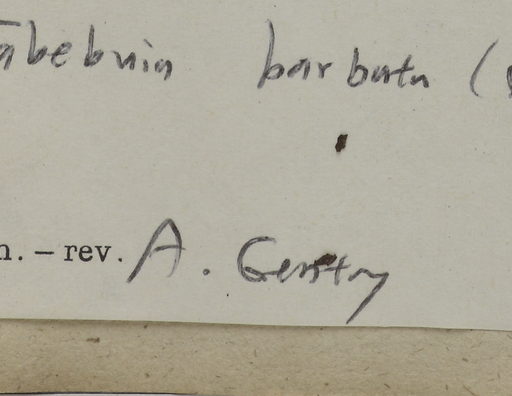 abebuia barbata (
n. – rev. A. Gentry